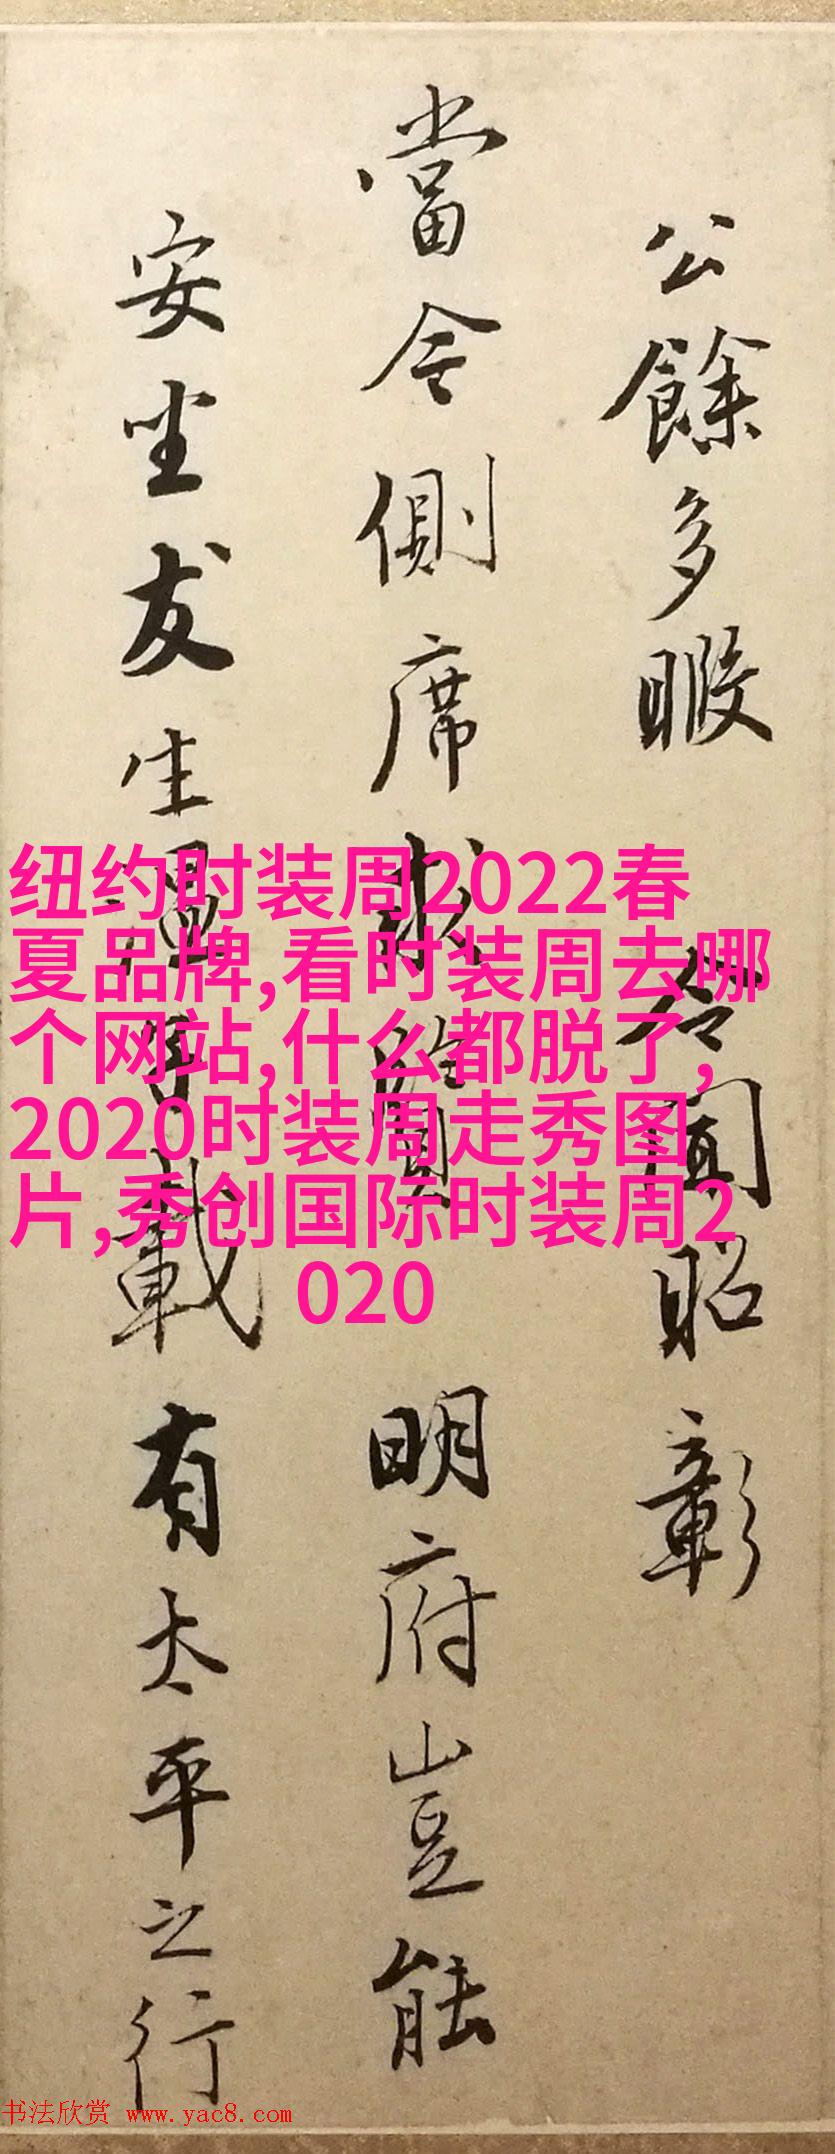 公餘多暇 令聞昭彰
當今側席求賢 明府豈能
安坐友生溫 載有太平之行
纽约时装周2022春
夏品牌,看时装周去哪
个网站,什么都脱了,
2020时装周走秀图
片,秀创国际时装周2
020
书法欣赏 www.yac8.com